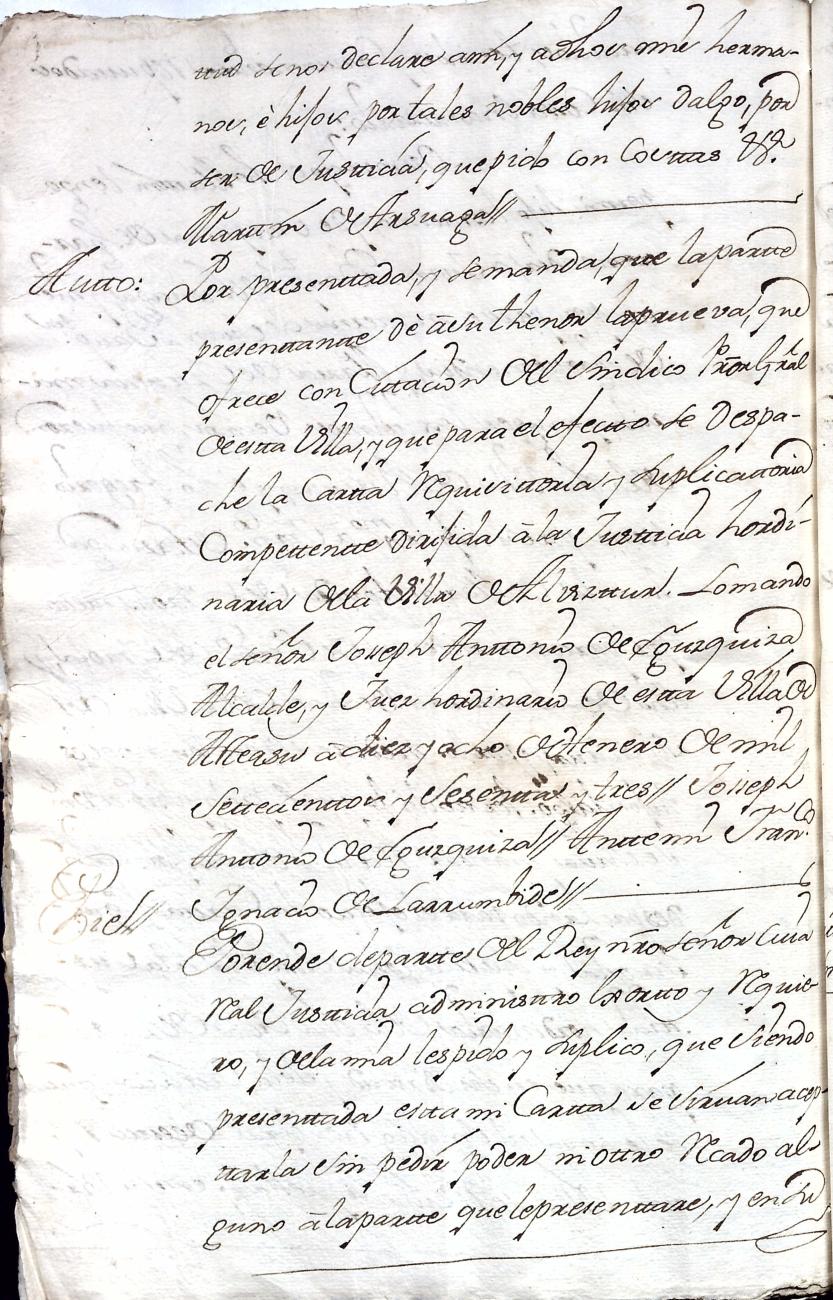 ttud señor declare ami, y adhos mis herma-
nos, è hijos por tales nobles hijos dalgo, por
ser de Justticia, que pido con Costtas &ª.
Marttin de Arsuaga//
Autto: Por presenttada, y se manda, que la partte
presenttantte dè à su thenor la prueva, que
ofrece con Cittacion del Sindico Pror Gral
de esta Villa, y que para el efectto se despa-
che la Cartta Requisittoria y Suplicattoria
Compettentte dirijida à la Justticia hordi-
naria de la Villa de Alvizttur. Lo mando
el señor Joseph Anttonio de Eguzquiza
Alcalde, y Juez hordinario de estta Villa de
Atteasu à diez y ocho de Henero de mil
Settecienttos y Sesentta y tres// Joseph
Anttonio de Eguzquiza// Antte mi Franco
Ignacio de Larrumbide//
Fiel// Porende de partte del Rey nro señor Cuia
Real Justticia administtro Exortto y Requie-
ro, y de la mia les pido y Suplico, que siendo
presenttada estta mi Cartta se sirvan acep-
ttarla sin pedir poder ni ottro Recado al-
guno à la partte que le presenttare, y en su